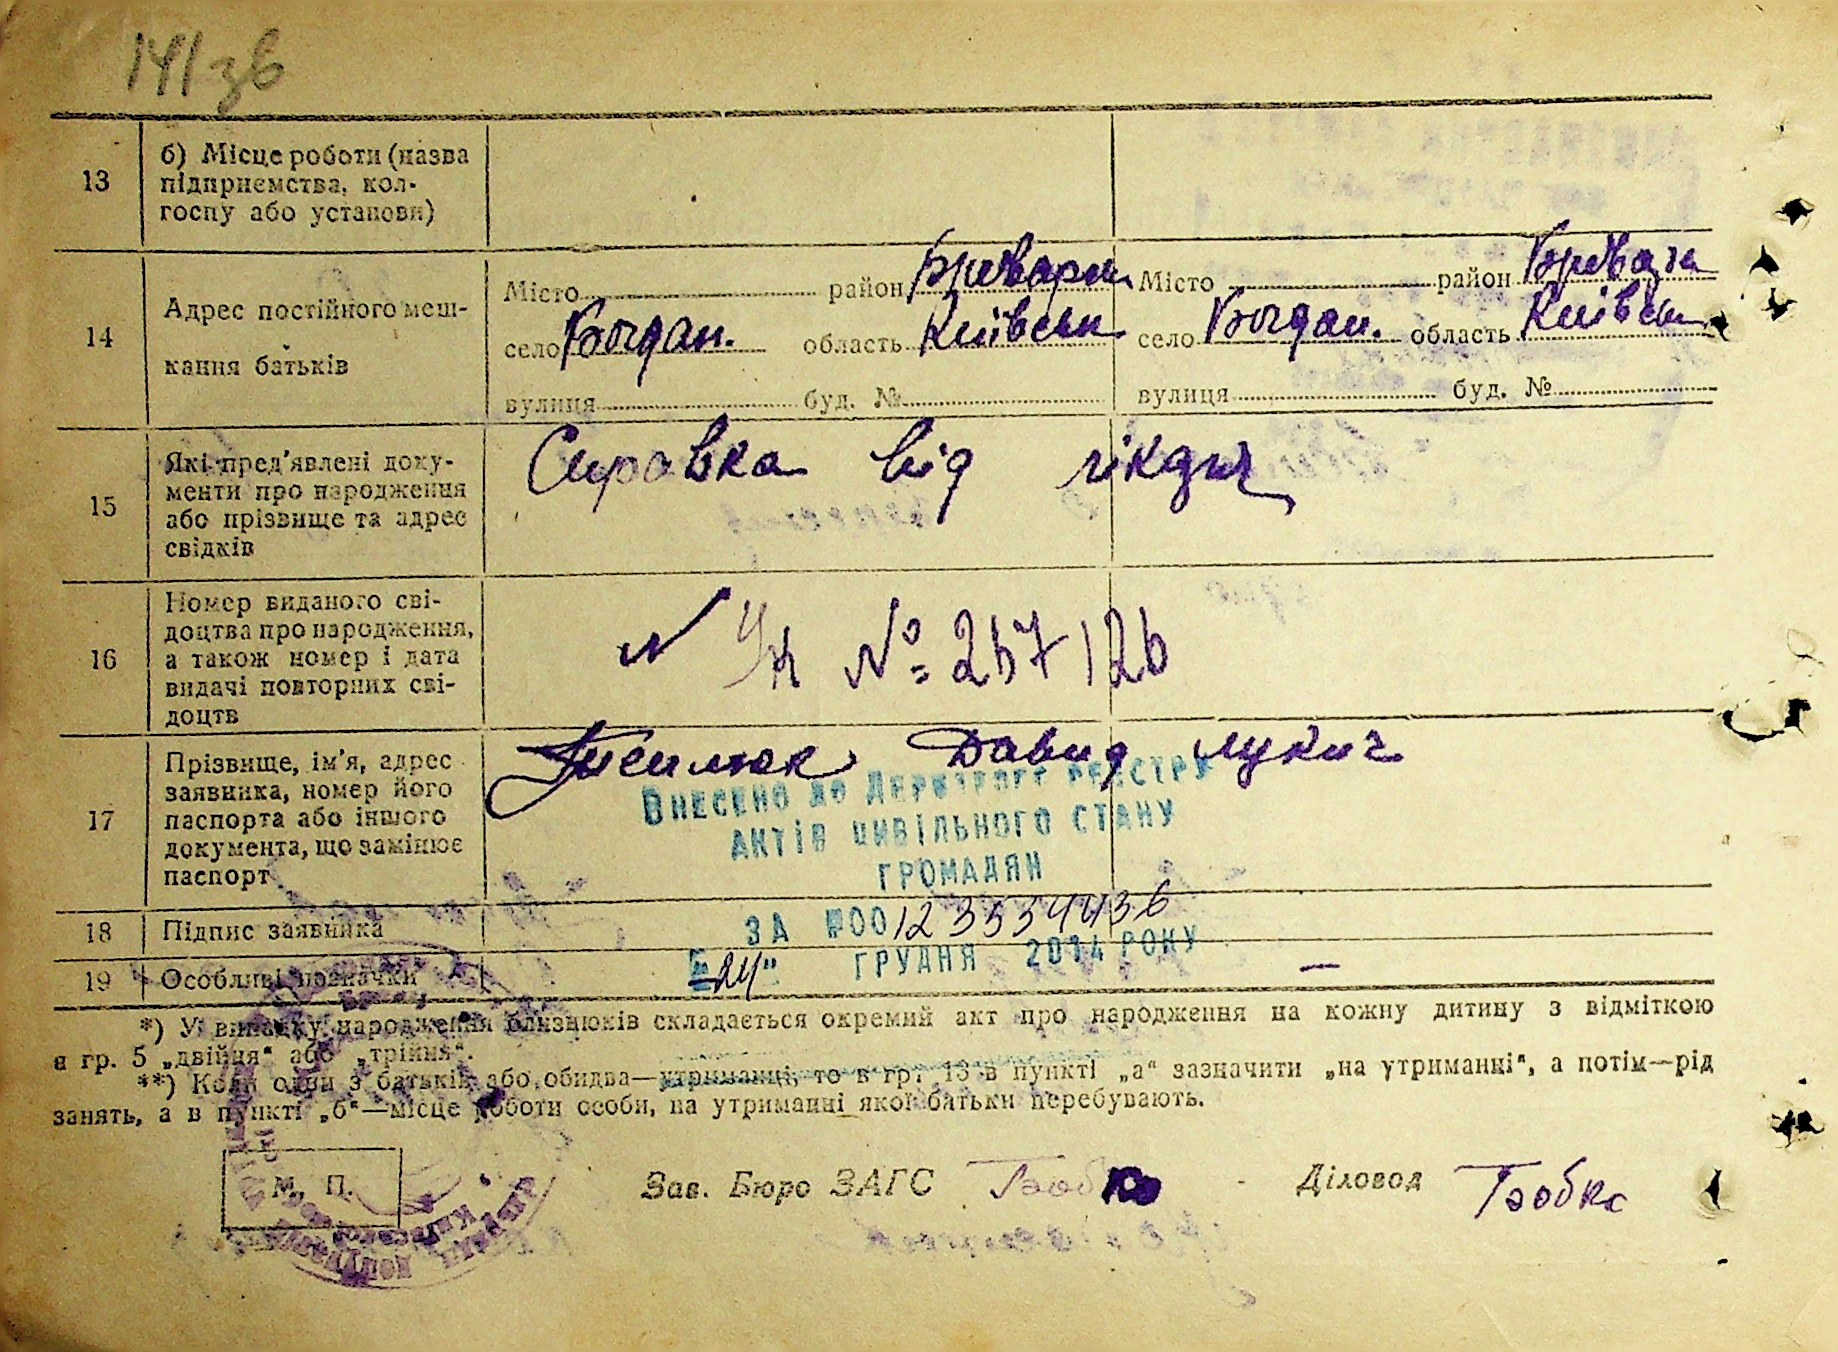 141 зв
13
б) Місце роботи (назва
підприємства, кол-
госпу або установи)
14
Адрес постійного меш-
кання батьків
Місто район Броварськ Місто район
село Богдан. область Київськ село Богдан. область Київськ
вулиця буд. № вулиця буд. №
15
Які пред'явлені доку-
менти про народження
або прізвище та адрес
свідків
Справка від
16
Номер виданого сві-
доцтва про народження,
а також номер і дата
видачі повторних сві-
доцтв
№
17
Прізвище, ім'я, адрес
заявника, номер його
паспорта або іншого
документа, що замінює
паспорт
Давид Лукич
Внесено до Державного реєстру
актів цивільного стану
громадян
18
Підпис заявника
за №00123534436
19
Особливі позначки
"24" грудня 2014 року
—
*) У випадку народження близнюків складається окремий акт про народження на кожну дитину з відміткою
в гр. 5 „двійня“ або „трійня“.
**) Коли один з батьків або обидва—утриманці, то в гр. 13 в пункті „а“ зазначити „на утриманні“, а потім—рід
занять, а в пункті „б“—місце роботи особи, на утриманні якої батьки перебувають.
М. П.
Зав. Бюро ЗАГС
Діловод